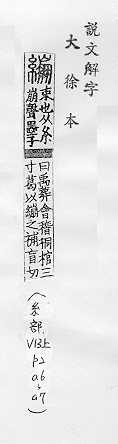 説文解字
大徐本
繃 束也从糸
崩聲墨子
曰禹葬會稽桐棺三
寸葛以繃之補盲切
(糸部
V13上
P2
a6、
a7)